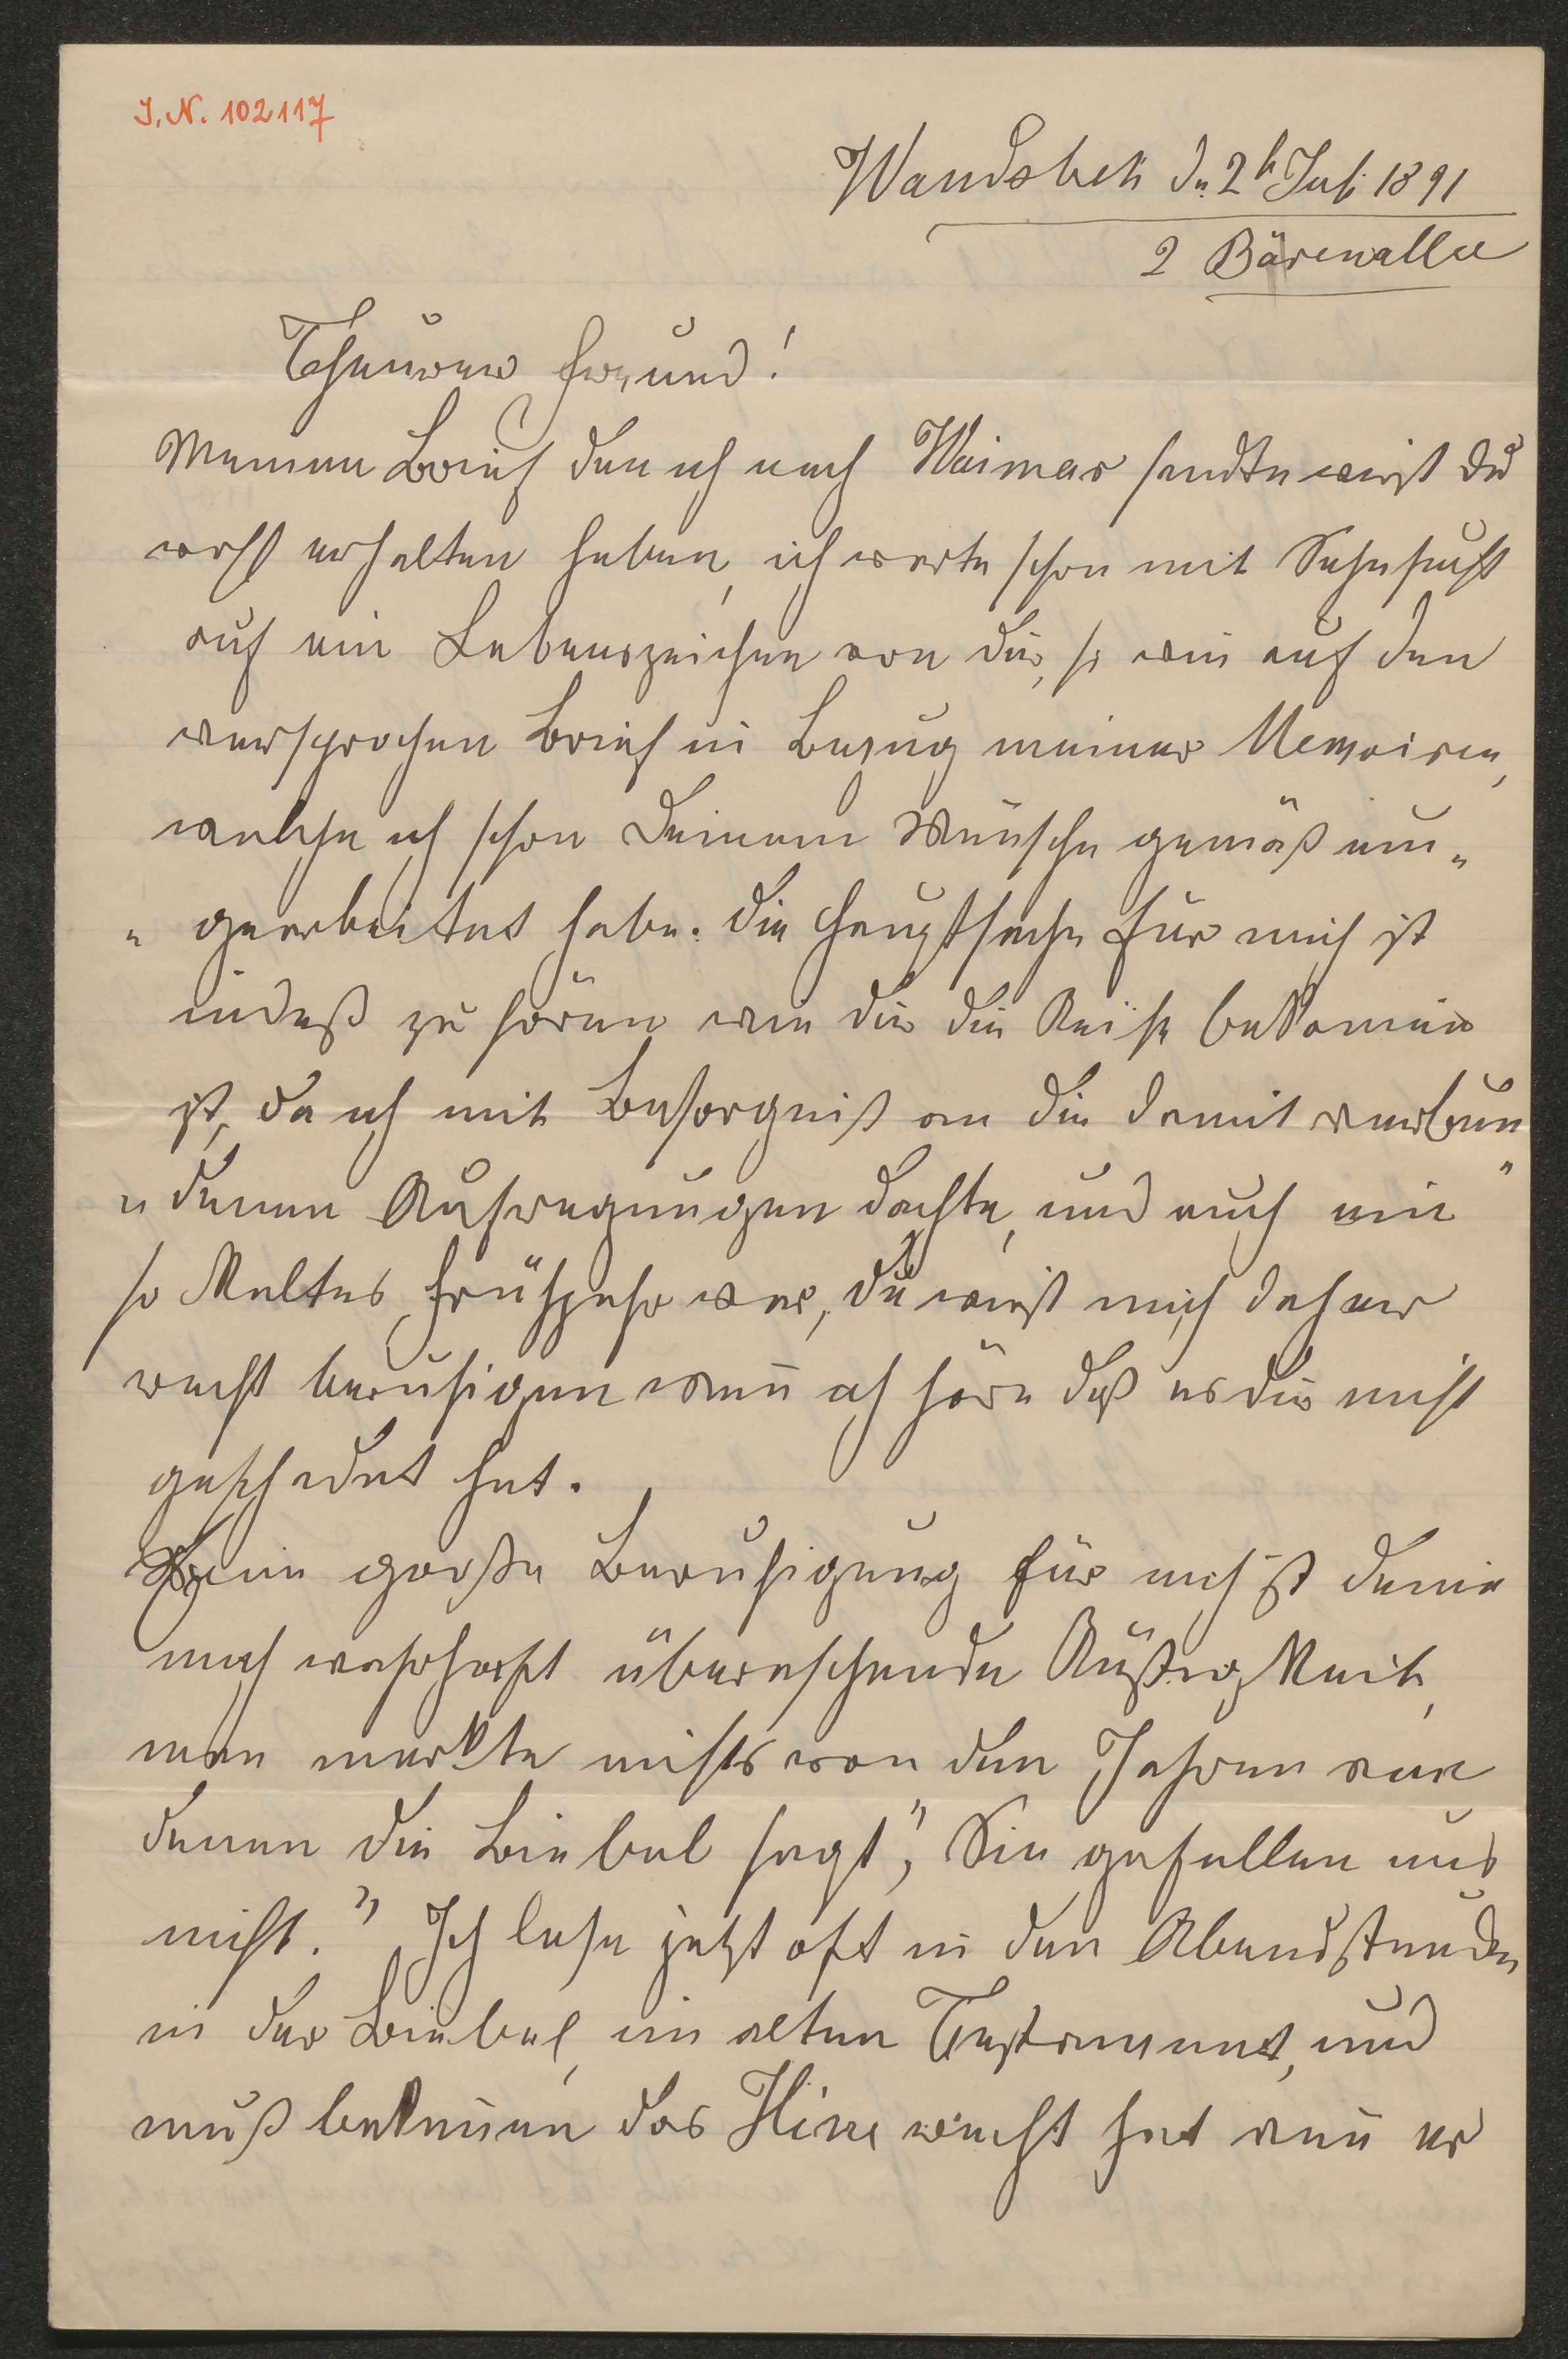 J. N. 102117
Wandsbek d. 2t Juli 1891
2 Bärenallee
Theurer Freund!
Meinen Brief den ich nach Weimar sandte wirst du
wohl erhalten haben, ich warte schon mit Sehnsucht
auf ein Lebenszeichen von dir, so wie auf den
versprochen Brief in Bezug meiner Memoiren,
welche ich schon Deinem Wunsche gemäß um„
„gearbeitet habe. Die Hauptsache für mich ist
indeß zu hören wie dir die Reise bekomen
ist, da ich mit Besorgniß an die damit verbun„
„denen Aufregungen dachte, und auch ein
so kaltes Frühjahr war, Du wirst mich daher
recht beruhigen wenn ich höre daß es dir nicht
geschadet hat.
Eine große Beruhigung für mich ist deine
mich wahrhaft überaschende Rüstigkeit,
man merkte nichts von den Jahren von
denen die Biebel sagt, „Sie gefallen uns
nicht." Ich lese jetzt oft in den Abendstunden
in der Biebel, im alten Testament, und
muß bekennen das Heine recht hat wen er